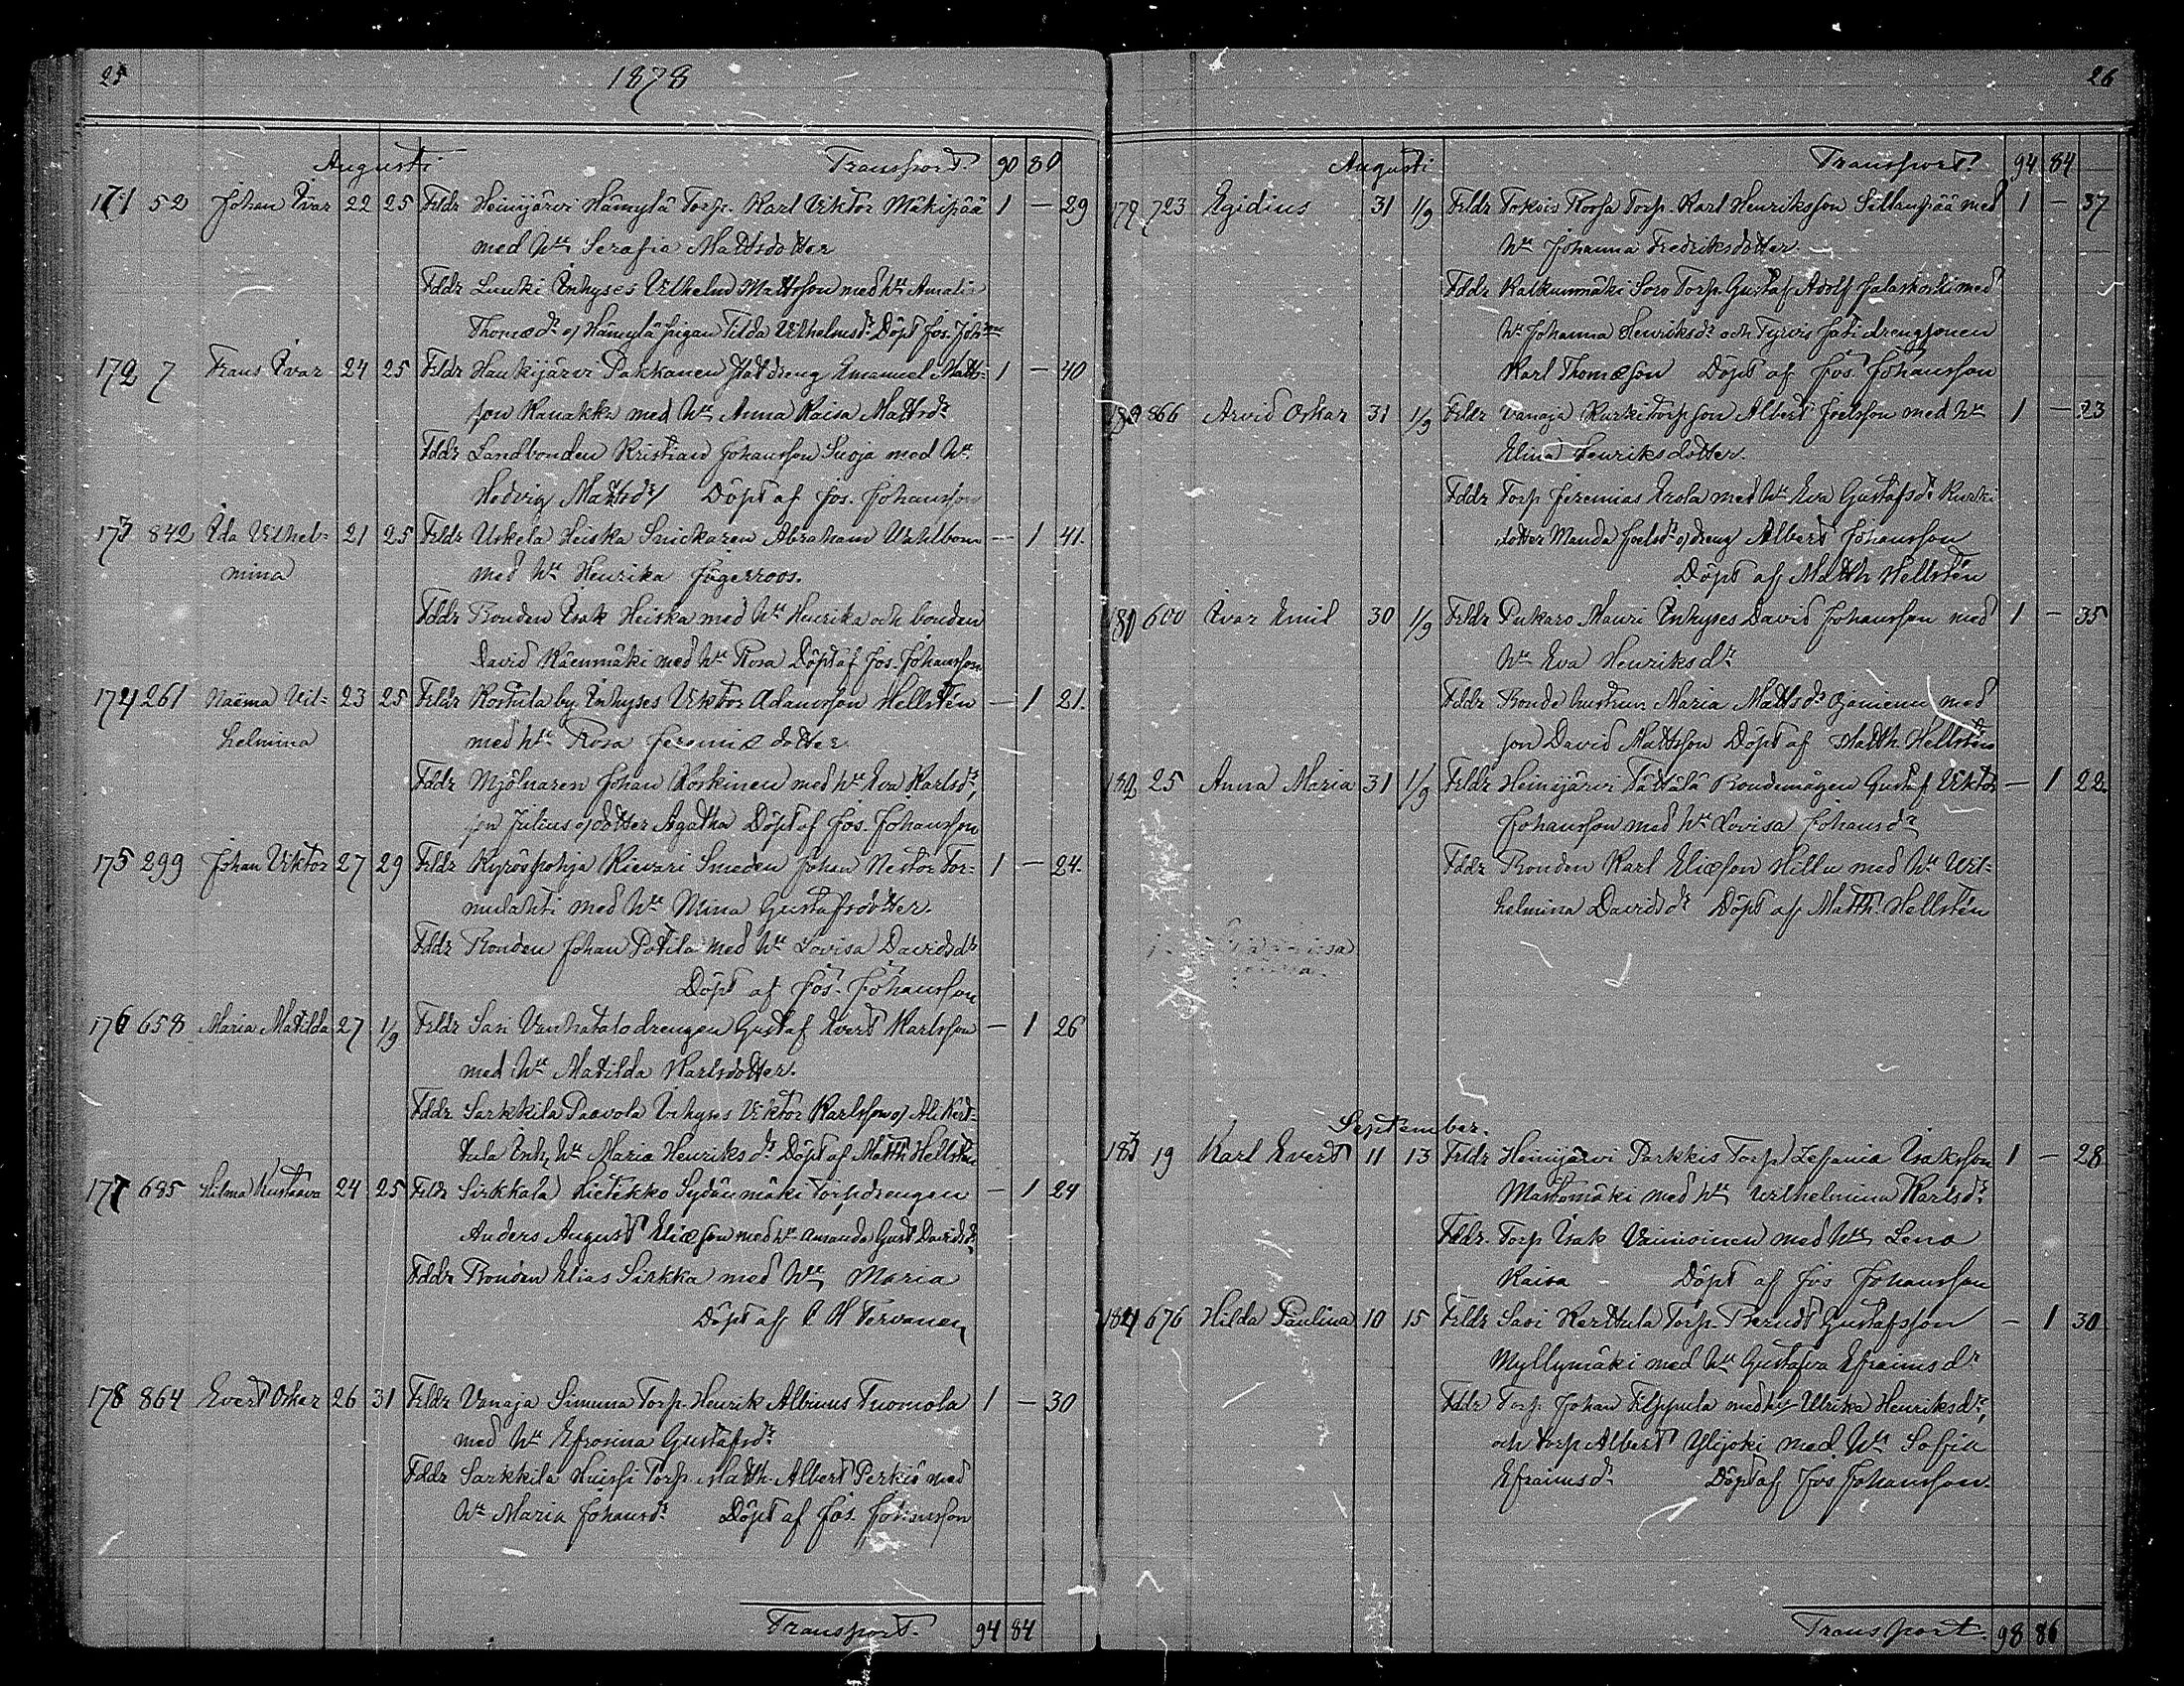 25 1878
Augusti Transport. 90 80
171 52 Johan Ivar 22 25 Frldr Heinijärvi Hämylä Torp. Karl Viktor Mäkipää 1 — 29
med Hu Serafia Mattsdotter
Fddr Luuki Inhyses Vilhelm Mattsson med Hu Amalia
Thomædr o/ Hämylä pigan Tilda Vilhelmsdr Döpt Jos. Johansson
172 7 Frans Ivar 24 25 Frldr Haukijärvi Pakkanen Statdreng Emanuel Matts- 1 — 40
son Kanakka med Hu Anna Kaisa Mattsdr
Fddr Landbonden Kristian Johansson Suoja med Hu
Hedvig Mattsdr Döpt af Jos. Johansson
173 842 Ida Vilhel- 21 25 Frldr Uskela Heiska Snickaren Abraham Vahlbom — 1 41.
mina med Hu Henrika Jägerroos.
Fddr Bonden Isak Heiska med Hu Henrika och bonden
David Käenmäki med Hu Rosa Döpt af Jos. Johansson
174 261 Naëma Vil- 23 25 Frldr Kostula by Inhyses Viktor Adamsson Hellstén — 1 21.
helmina med Hu Rosa Jeremiædotter
Fddr Mjölnaren Johan Koskinen med Hu Eva Karlsdr,
son Julius o/ dotter Agatha Döpt af Jos. Johansson
175 299 Johan Viktor 27 29 Frldr Kyröspohja Kievari Smeden Johan Nestor Tor- 1 — 24.
nulahti med Hu Mina Gustafsdotter.
Fddr Bonden Johan Potila med Hu Lovisa Davidsdr
Döpt af Jos. Johansson
176 658 Maria Matilda 27 1/9 Frldr Sasi Vanhatalo drengen Gustaf Evert Karlsson — 1 26
med Hu Matilda Karlsdotter.
Fddr Sarkkila Paavola Inhyses Viktor Karlsson o/ Ali Kert-
tula Inh. Hu Maria Henriksdr Döpt af Matth Hellstén
177 685 Hilma Kustaava 24 25 Frldr Sirkkala Hietikko Sydänmäki torpdrengen — 1 24
Anders August Eliæson med Hu Amanda Gust. Davidsdr
Fddr Bonden Elias Sirkka med Hu Maria
Döpt af C H Tervonen
178 864 Evert Oskar 26 31 Frldr Vanaja Simuna Torp. Henrik Albinus Tuomola 1 — 30
med Hu Efrosina Gustafsdr
Fddr Sarkkila Huissi Torp. Matth. Albert Perkiö med
Hu Maria Johansdr Döpt af Jos. Johansson
Transport. 94 84
26
Augusti Transport. 94 84
179 723 Egidius 31 1/9 Frldr Tokois Roosa Torp. Karl Henriksson Sillanpää med 1 — 37
Hu Johanna Fredriksdotter
Fddr Kalkunmäki Soro Torp. Gustaf Adolf Jalaskoski med
Hu Johanna Henriksdr och Tyrvis Jati drengsonen
Karl Thomæson Döpt af Jos. Johansson
180 866 Arvid Oskar 31 1/9 Frldr Vanaja Kurki torpson Albert Joelsson med Hu 1 — 23
Elina Henriksdotter.
Fddr Torp Jeremias Erola med Hu Eva Gustafsdr Kurki
dotter Manda Joelsdr o/ dreng Albert Johansson
Döpt af Matth Hellstén
181 600 Ivar Emil 30 1/9 Frldr Pukaro Mauri Inhyses David Johansson med 1 — 35
Hu Eva Henriksdr
Fddr Bonde hustrun Maria Mattsdr Ojaniemi med
son David Mattsson Döpt af Matth. Hellstén
182 25 Anna Maria 31 1/9 Frldr Heinijärvi Tättälä Bondemågen Gustaf Viktor — 1 22.
Johansson med Hu Lovisa Johansdr
Fddr Bonden Karl Eliæson Hillu med Hu Vil-
helmina Davidsdr Döpt af Matth. Hellstén
September.
183 19 Karl Evert 11 13 Frldr Heinijärvi Parkkis Torp Zefania Isaksson 1 — 28
Mastomäki med Hu Vilhelmina Karlsdr
Fddr. Torp Isak Vainioinen med Hu Lena
Kaisa Döpt af Jos Johansson
184 676 Hilda Paulina 10 15 Frldr Sasi Kerttula Torp. Berndt Gustafsson — 1 30
Myllymäki med Hu Gustafva Efraimsdr
Fddr Torp. Johan Filppula med Hu Ulrika Henriksdr,
och torp Albert Ylijoki med Hu Sofia
Efraimsdr Döpt af Jos Johansson.
Transport. 98 86